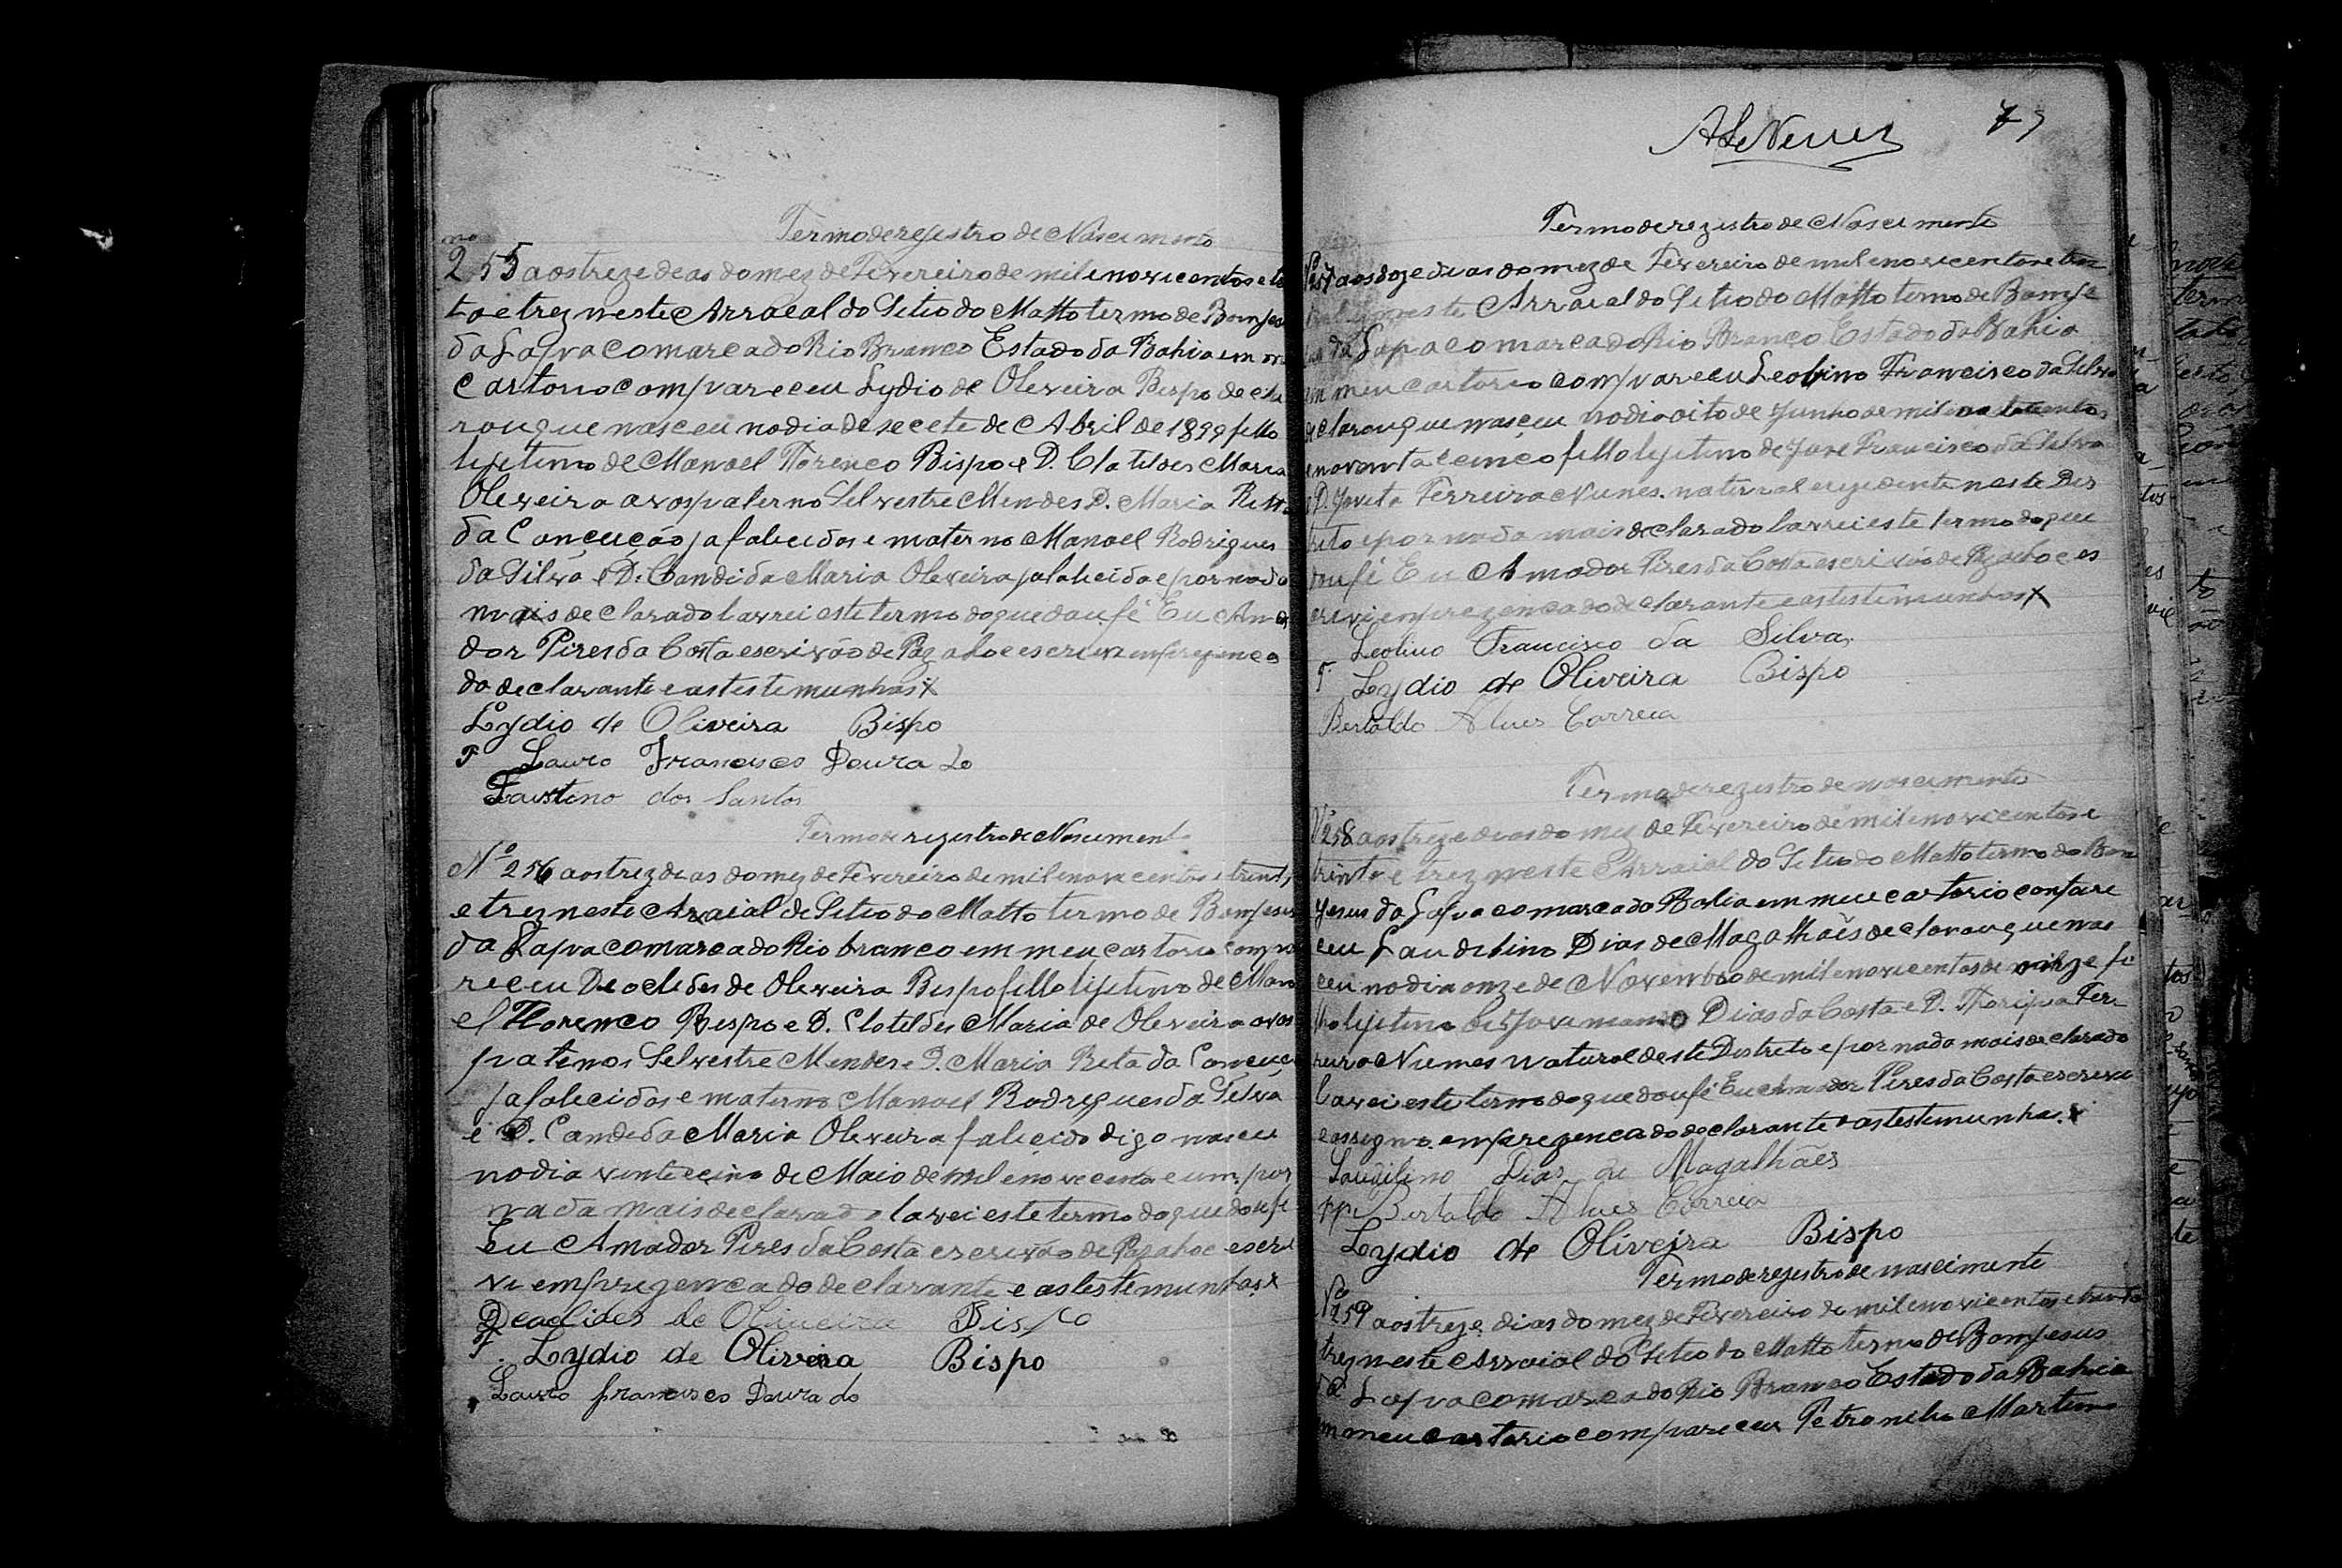 Termo de registro de Nascimento
255 aos treze deas do mez de Fevereiro de mil e novicentos e
ta e trez neste Arraeal do Setio do Matto termo de Bomjesu
da Lapa comarca do Rio Branco Estado da Bahia em
cartorio compareceu Lydio de Oleveira Bispo de cla
rou que nasceu no dia desecete de Abril de 1899 fillo
lijetimo de Manoel Florenco Bispo e D. Clatildes Maria
Oleveira avos paterno Selvestre Mendes D. Maria Ritta
da Conçeução ja falecidos e materno Manoel Rodrigues
da Silva e D. Candida Maria Oleveira ja falicida e por nada
mais de clarado lavrei este termo do que dou fé Eu Ama
dor Pires da Costa escrivão de Paz aho e escrevi em prezença
do declarante e as testemunhas
Lydio de Oliveira Bispo
T Lauro Francisco Doura do
Faustino dos Santos
Termo de registro de Nasciment
Nº 256 aos trez deas do mez de Fevereiro de mil e novecentos e trenta
e trez neste Arraial de Setio do Matto termo de Bomjesus
da Lapa comarca do Rio branco em meu cartorio compa
receu Deoclides de Oleveira Bispo fillo lijetimo de Mano
el Florenco Bespo e D. Clotildes Maria de Oleveira avos
paternos Selvestre Mendes e D. Maria Reta da Conçeuç
ja falecidos e materno Manoel Rodregues da Selva
e D. Candeda Maria Oleveira falicido digo nasceu
no dia vinte e cino de Maio de mil e novecento e um, por
nada mais declarado lavei este termo do que dou fé
eu Amador Peres da Costa escrivão de Paz aho e escre
vi em prezença do declarante e as testemunhas
Deaclides de Oliveira Bispo
T. Lydio de Oliveira Bispo
Lauro francisco Doura do
79
Termo de rezistro de Nascimento
Nº 257 aos doze dias do mez de Fevereiro de mil e novecentos e trin
neste Arraial do Setio do Matto termo de Bomje
da Lapa comarca do Rio Branco Estado da Bahia
em meu cartorio compareceu Leolino Francisco da Selva
declarou que nasceu no dia oito de Junho de mil e oitocentos
e noventa e cinco fillo lejetimo de Jose Francisco da Silva
e D. Ferreira Nunes. natural e rezidente neste Des
treto e por nada mais declarado lavrei este termo do que
dou fé Eu Amador Peres da Costa escrivão de Paz aho e es
crevi em prezença do declarante e as testemunhas
Leolino Francisco da Silva
T. Lydio de Oliveira Bispo
Bertoldo Alves Correia
Termo de rezistro de nascimento
Nº 258 aos treze deas do mez de Fevereiro de mil e novicentos e
trinta e trez neste Arraial do Seteo do Matto termo do Bom
Jesus da Lapa comarca da Bahia em meu cartorio compare
ceu Laudelino Dias de Magalhães declarou que nas
ceu no dia onze de Novembro de mil e novicentos de fi
lho lejetimo de Dias da Costa e D. Fer
reira Nunes natural deste Destreto e por nada mais declarado
lavrei este termo do que dou fé Eu Amador Peres da Costa escrevi
e assegno em prezença do declarante e as testemunhas.
Laudilino Dias de Magalhães
pp. Bertoldo Alves Correia
Lydio de Oliveira Bispo
Termo de rezistro de nascimento
Nº 259 aos treze dias do mez de Fevereiro de mil e novicentos e trenta
trez neste Arraial do Seteo do Matto termo de Bomjesus
da Lapa comarca do Rio Branco Estado da Bahia
em meu cartorio compareceu Petronilio Martins